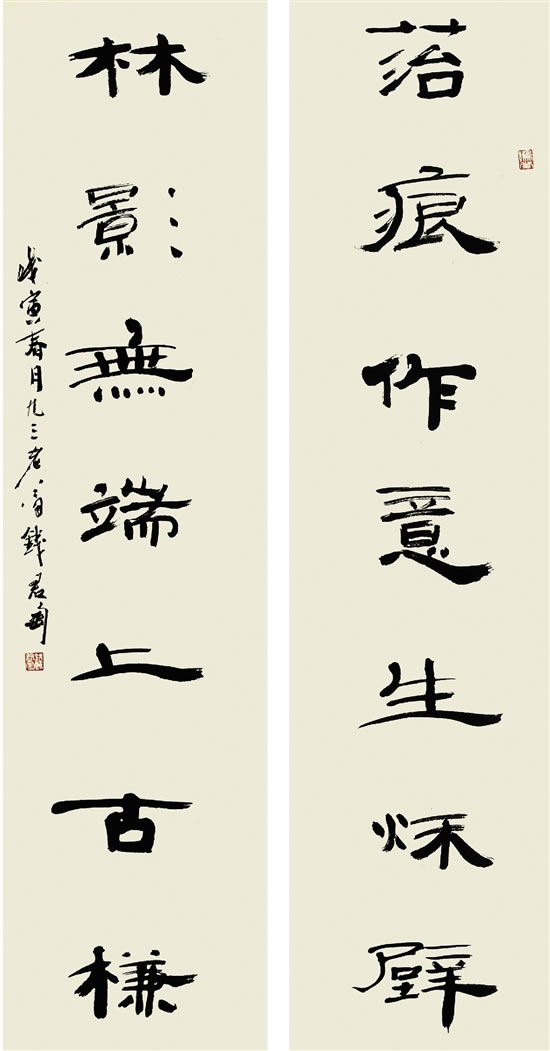 菭痕作意生秌壁
林影無端上古槏
戊寅春月九三老翁錢君匋